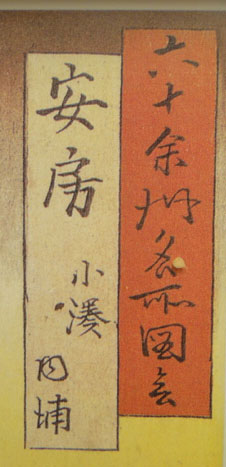 六十余州名所図会
安房
小湊
内浦